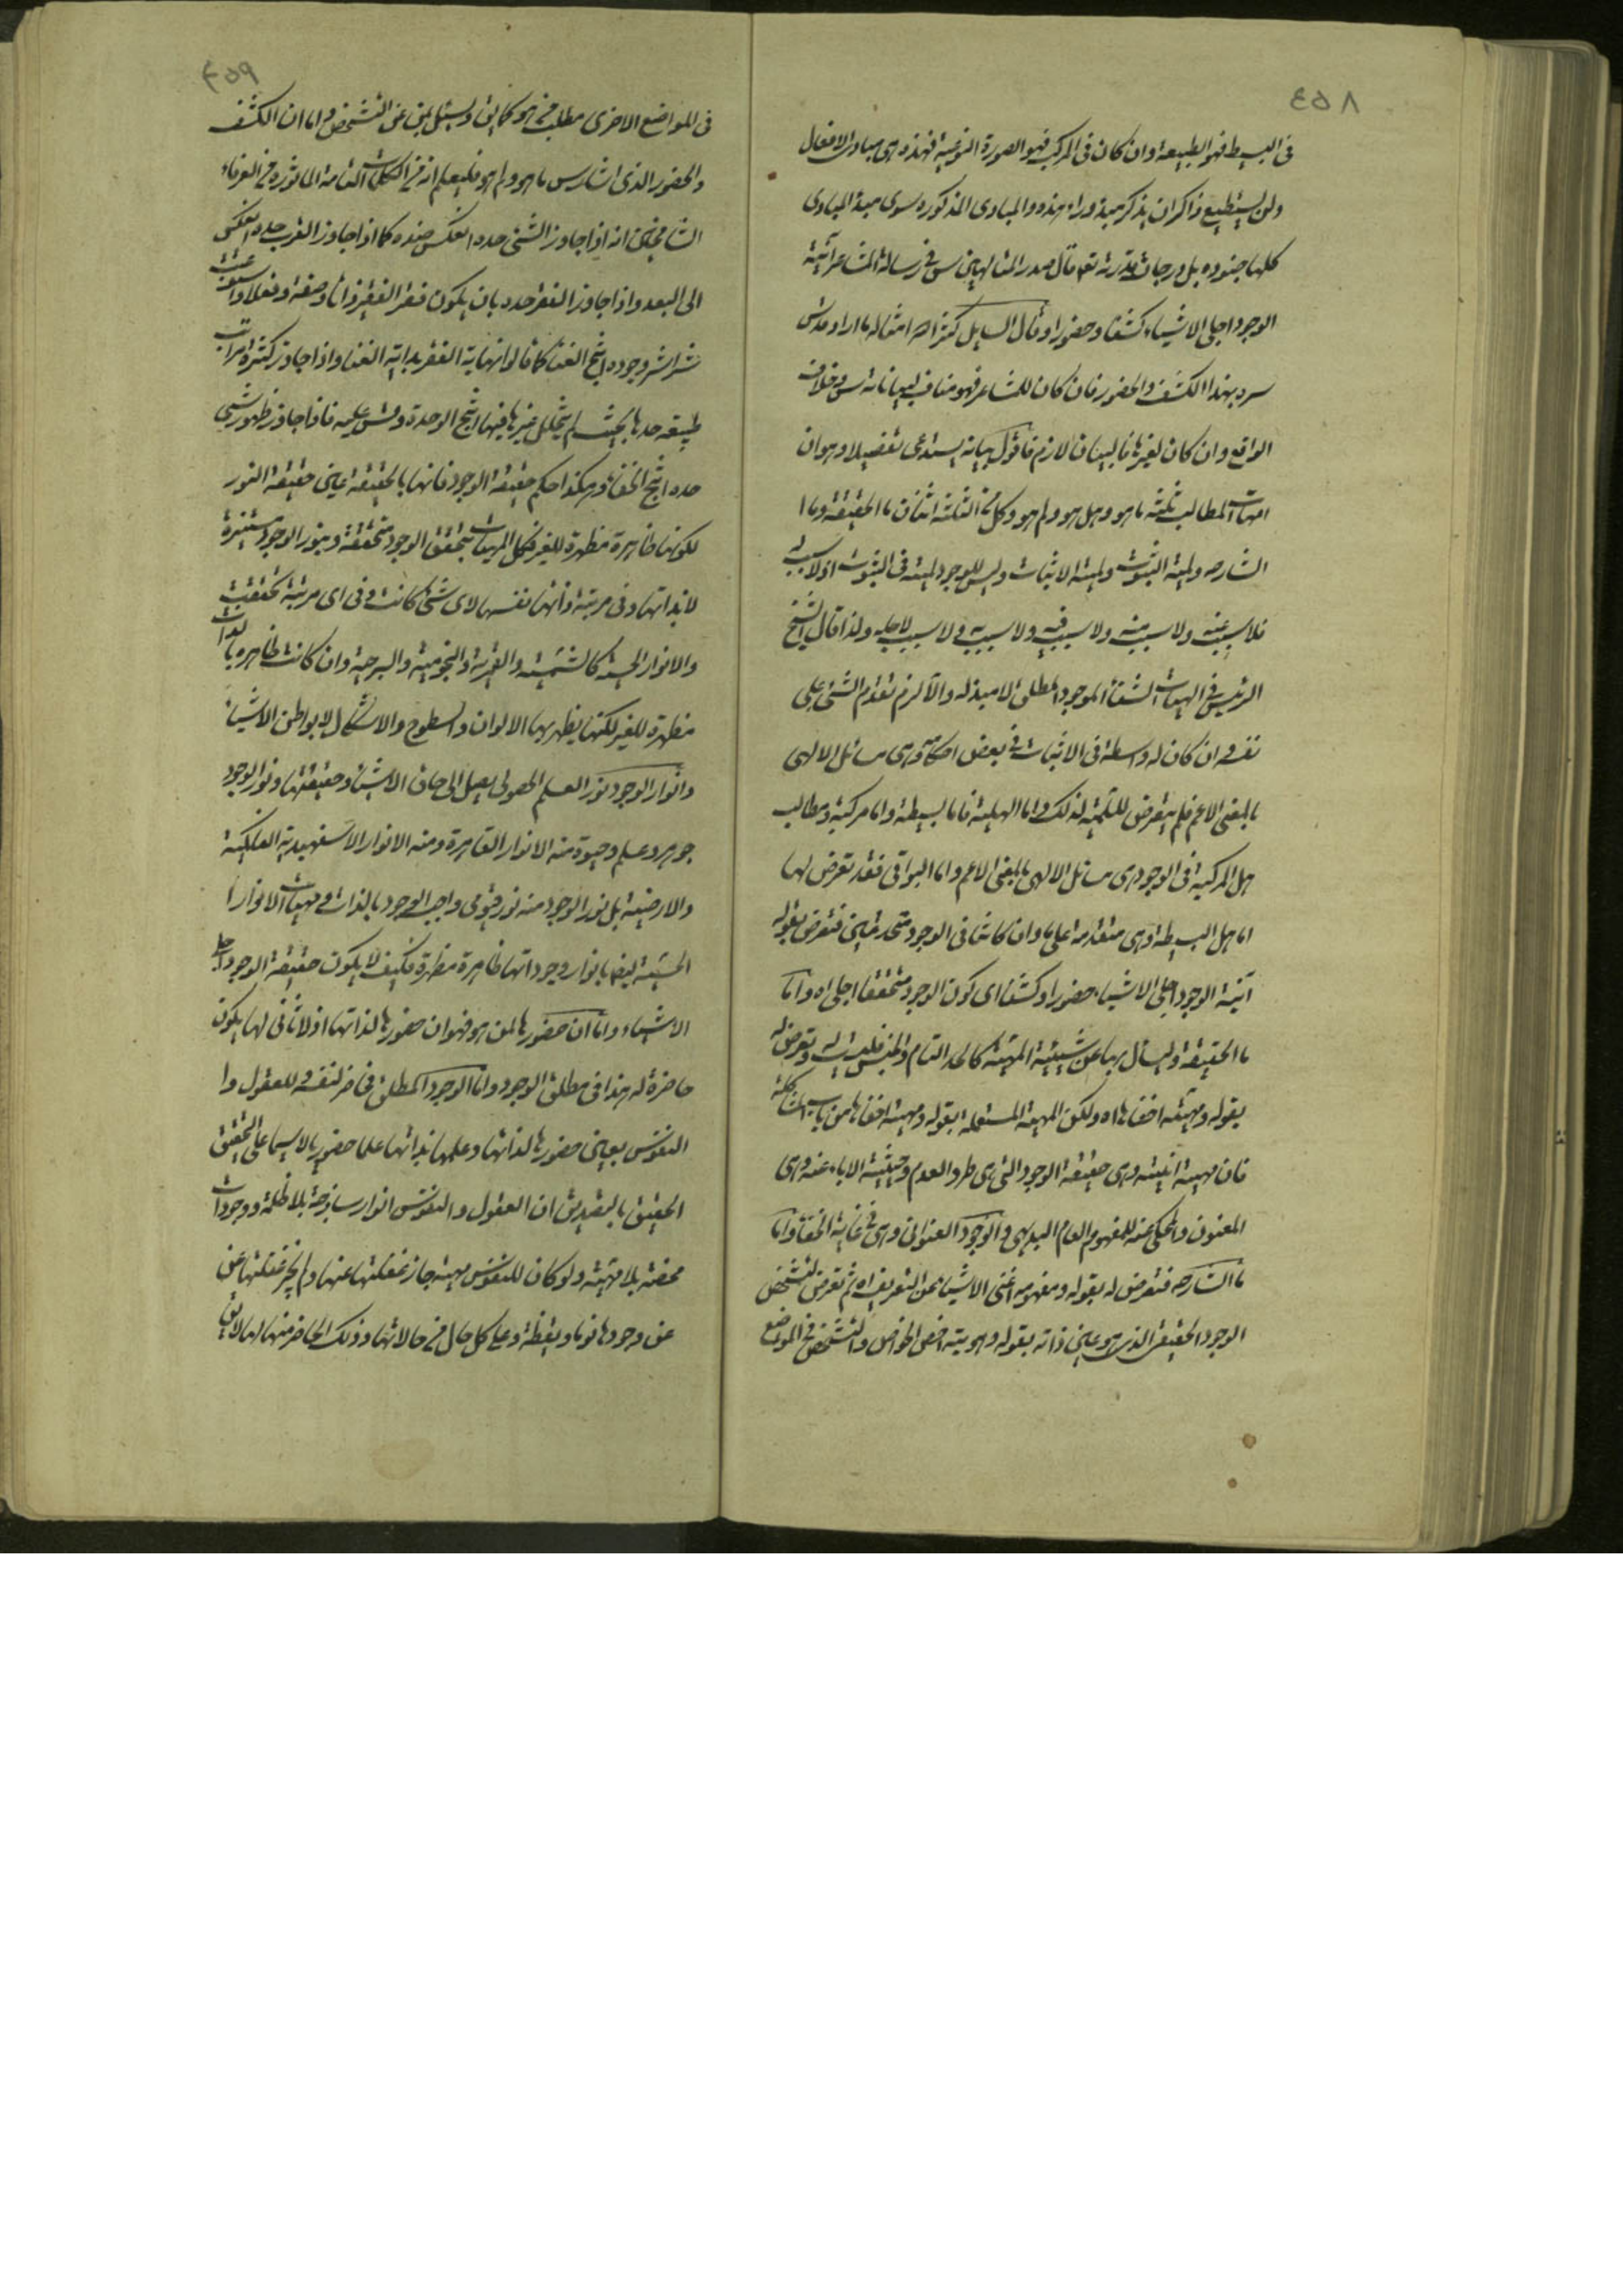 ٤٥٨
فى البسيط فهو الطبيعة وان كان فى المركب فهو الصورة النوعية فهذه هى مبادى الافعال
ولن يستطيع ذاكر ان يذكر مبدء وراء هذه والمبادى المذكوره سوى مبدء المبادى
كلها جنوده بل درجات قدرته تعه قال صدر المتالهين س فى رسالة المشاعر آنية
الوجود اجلى الاشياء كشفا وحضورا وقال السايل كثر الله امثاله ما اراد قدس
سره بهذا الكشف والحضور فان كان للمشاعر فهو مناف لبياناته س وخلاف
الواقع وان كان لغيرها فالبيان لازم فاقول بيانه يستدعى تفصيلا وهو ان
امهات المطالب ثلثة ما هو وهل هو ولم هو وكل من الثلثة اثنان ما الحقيقة وما
الشارحه ولمية الثبوت ولمية الاثبات وليس للوجود لمية فى الثبوت اذ لا سبب له
فلا سبب عنه ولا سبب منه ولا سبب فيه ولا سبب به ولا سبب لاجله ولذا قال الشيخ
الرئيس فى الهيات الشفا الموجود المطلق لا مبدء له والا لزم تقدم الشئ على
نفسه وان كان له واسطة فى الاثبات فى بعض احكامه وهى مسائل الالهى
بالمعنى الاعم فلم يتعرض للمية لذلك واما الهلية فاما بسيطة واما مركبة ومطالب
هل المركبة فى الوجود هى مسائل الالهى بالمعنى الاعم واما البواقى فقد تعرض لها
اما هل البسيطة وهى متقدمه على ما وان كانتا فى الوجود متحدتين فتعرض بقوله
آنية الوجود اجلى الاشياء حضورا وكشفا اى كون الوجود متحققا اجلى اه واما
ما الحقيقة ويسأل بها عن شيئية المهية كالحد التام والجنس فليست له وتعرض له
بقوله ومهيته اخفاها اه ولكن المهية المستعملة بقوله ومهيته اخفاها من باب المشاكلة
فان مهيته انيته وهى حقيقة الوجود التى هى طرد العدم وحيثية الاباء عنه وهى
المعنون والمحكى عنه للمفهوم العام البديهى والوجود العنوانى وهى فى غاية الخفا واما
ما الشارحه فتعرض له بقوله ومفهومه اغنى الاشياء عن التعريف اه ثم تعرض لتشخص
الوجود الحقيقى الذى هو عين ذاته بقوله وهويته اخص الخواص والتشخص فى المواضع
٤٥٩
فى المواضع الاخرى مطلب من هو كما يق ويسئل بمن عن التشخص واما ان الكشف
والحضور الذى اشار س ما هو ولم هو فليعلم انه من الكلمات التامة الماثورة من العرفاء
الشامخين انه اذا جاوز الشئ حده انعكس ضده كما اذا جاوز القرب حده انعكس
الى البعد واذا جاوز الفقر حده بان يكون فقر الفقير ذاتا وصفة وفعلا واستوعب
شراشر وجوده انتج الغنا كما قالوا نهاية الفقر بداية الغنا واذا جاوز كثرة مراتب
طبيعة حدها بحيث لم يتخلل غيرها فيها انتج الوحدة وقس عليه فاذا جاوز ظهور شئ
حده انتج الخفاء وهكذا حكم حقيقة الوجود فانها بالحقيقة عين حقيقة النور
لكونها ظاهرة مظهرة للغير فكل المهيات بتحقق الوجود متحققة وبنور الوجود مستنيرة
لا بذاتها وفى مرتبة ذاتها نفسها لاى شئ كانت وفى اى مرتبة تحققت
والانوار الحسية كالشمسية والقمرية والنجومية والسرجية وان كانت ظاهرة بالذات
مظهرة للغير لكنها يظهر بها الالوان والسطوح والاشكال لا بواطن الاشياء
وانوار الوجود نور العلم الحصولى يصل الى حاق الاشياء وحقيقتها ونور الوجود
جوهر وعلم وحيوة منه الانوار القاهرة ومنه الانوار الاسفهبدية الفلكية
والارضية بل نور الوجود منه نور قيومى واجب الوجود بالذات ومهيات الانوار
الحسية ايضا بانوار وجوداتها ظاهرة مظهرة فكيف لا يكون حقيقة الوجود اجلى
الاشياء واما ان حضورها لمن هو فهو ان حضورها لذاتها اذ لا ثانى لها يكون
حاضرة له هذا فى مطلق الوجود واما الوجود المطلق فحاضر لنفسه وللعقول وا
النفوس بعين حضورها لذاتها وعلمها بذاتها علما حضوريا لا سيما على التحقيق
الحقيق بالتصديق ان العقول والنفوس انوار ساذجة بلا ظلمة ووجودات
محضة بلا مهية ولو كان للنفوس مهية جاز غفلتها عنها ولم يجز غفلتها عن
عن وجودها نوما ويقظة وعلى كل حال من حالاتها وذلك الحاضر منها لها لا يق